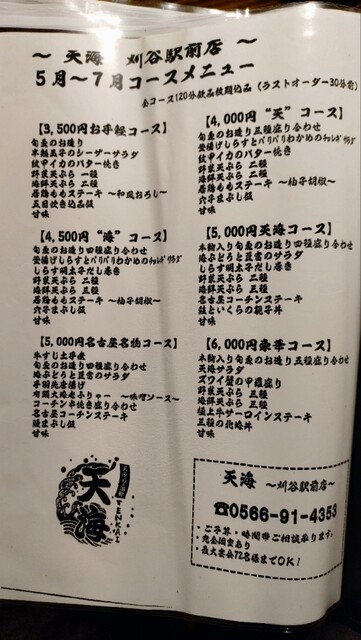 ～ 天海 刈谷駅前店 ～
5月～7月コースメニュー
全コース120分飲品放題込品（ラストオーダー30分前）
【3,500円お手軽コース】
旬魚のお造り
本鮪五辛のシーザーサラダ
紋甲イカのバター焼き
野菜天ぷら 二種
海鮮天ぷら 二種
若鶏ももステーキ ～和風おろし～
五目炊き込品飯
甘味
【4,500円 “海” コース】
旬魚のお造り四種盛り合わせ
釜揚げしらすとパリパリわかめのチョレギサラダ
しらす明太子だし巻き
野菜天ぷら 二種
海鮮天ぷら 三種
若鶏ももステーキ ～柚子胡椒～
穴子まぶし飯
甘味
【5,000円名古屋名物コース】
牛すじ土手煮
海ぶどうと豆富のサラダ
手羽先唐揚げ
有頭大海老ふりゃー ～味噌ソース～
コーチン串焼き盛り合わせ
名古屋コーチンステーキ
鰻まぶし飯
甘味
【4,000円 “天” コース】
旬魚のお造り三種盛り合わせ
釜揚げしらすとパリパリわかめのチョレギサラダ
紋甲イカのバター焼き
野菜天ぷら 二種
海鮮天ぷら 二種
若鶏ももステーキ ～柚子胡椒～
穴子まぶし飯
甘味
【5,000円天海コース】
本鮪入り旬魚のお造り四種盛り合わせ
海ぶどうと豆富のサラダ
しらす明太子だし巻き
野菜天ぷら 三種
海鮮天ぷら 三種
名古屋コーチンステーキ
鮭といくらの親子丼
甘味
【6,000円豪華コース】
本鮪入り旬魚のお造り五種盛り合わせ
天海サラダ
ズワイ蟹の甲羅盛り
野菜天ぷら 三種
海鮮天ぷら 三種
極上牛サーロインステーキ
三種の北海丼
甘味
天海
TENKAI
天海 ～刈谷駅前店～
☎0566-91-4353
・ご予算・時間帯ご相談承ります。
・完全個室あり
・最大宴会72名様までOK！